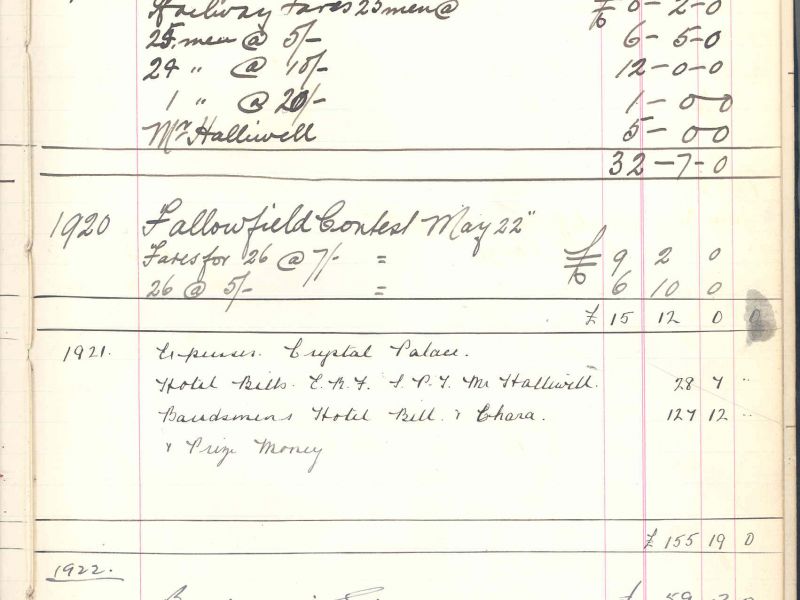 Railway Fares 25 men @ £ 8-2-0
25 men @ 5/- 6-5-0
24 " @ 10/- 12-0-0
1 " @ 20/- 1-0-0
Mr Halliwell 5-0-0
32-7-0
1920 Fallowfield Contest May 22"
Fares for 26 @ 7/- = £ 9 2 0
26 @ 5/- = 6 10 0
£ 15 12 0 0
1921. Expenses. Crystal Palace.
Hotel Bills. Mr Halliwell. 28 7 "
Bandsmens Hotel Bill. & Chara. 127 12 "
& Prize Money
£ 155 19 0
1922.
£ 59